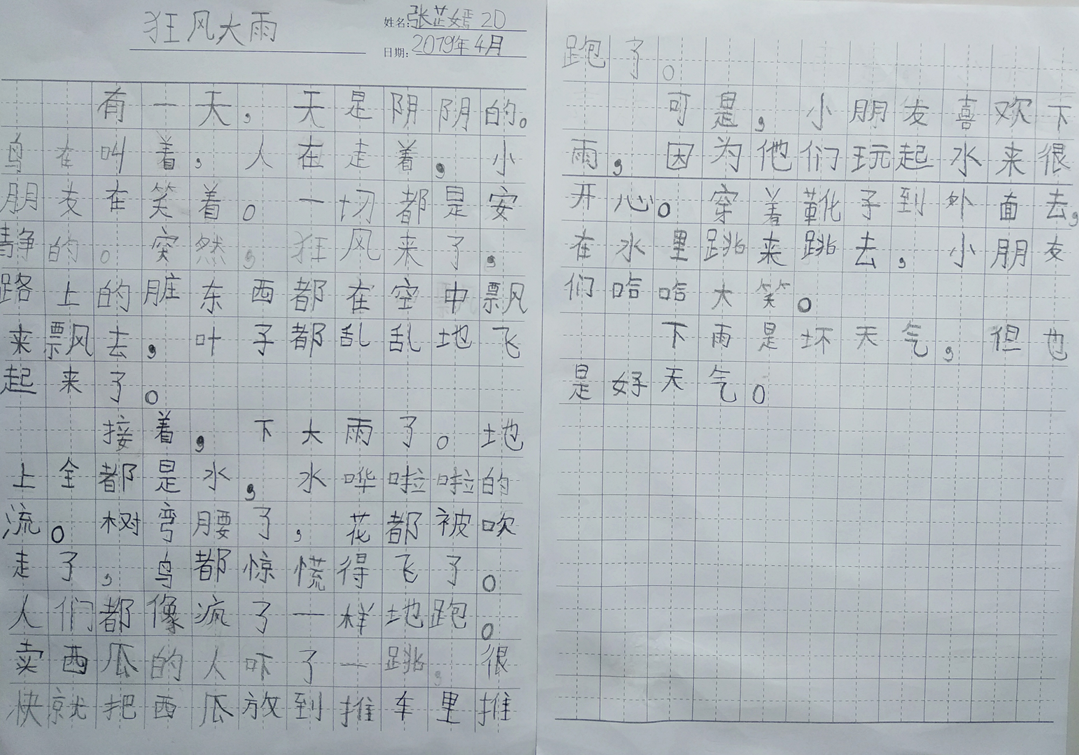 狂风大雨
姓名:张芷嫣 2D
日期:2019年4月
有一天,天是阴阴的。
鸟在叫着,人在走着,小
朋友在笑着。一切都是安
静的。突然,狂风来了,
路上的脏东西都在空中飘
来飘去,叶子都乱乱地飞
起来了。
接着,下大雨了。地
上全都是水,水哗啦啦的
流。树弯腰了,花都被吹
走了,鸟都惊慌得飞了。
人们都像疯了一样地跑。
卖西瓜的人吓了一跳,很
快就把西瓜放到推车里推
跑了。
可是,小朋友喜欢下
雨,因为他们玩起水来很
开心。穿着靴子到外面去,
在水里跳来跳去,小朋友
们哈哈大笑。
下雨是坏天气,但也
是好天气。